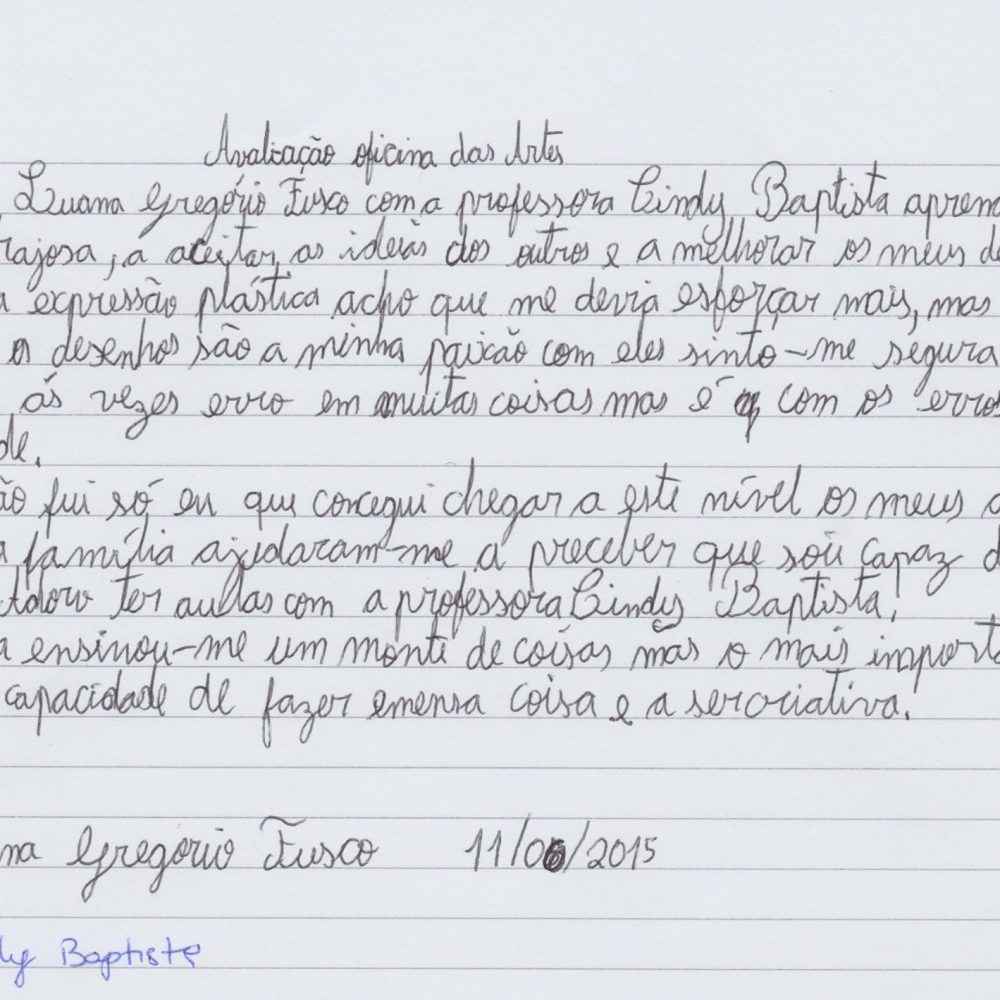 Avaliação oficina das Artes
Luana Gregório Fusco com a professora Cindy Baptista apren
rajosa, a aceitar as ideias dos outros e a melhorar os meus de
a expressão plástica acho que me devia esforçar mais, mas
os desenhos são a minha paixão com eles sinto-me segura
ás vezes erro em muitas coisas mas é q com os erros
de.
ão fui só eu que concegui chegar a este nível os meus a
a família ajudaram-me a preceber que sou capaz d
Adoro ter aulas com a professora Cindy Baptista.
a ensinou-me um monte de coisas mas o mais importa
capacidade de fazer emensa coisa e a ser criativa.
na Gregório Fusco 11/06/2015
dy Baptista